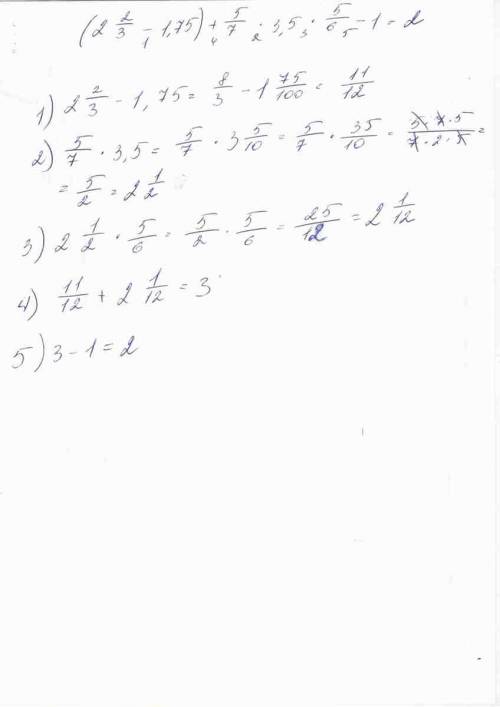 (2 2/3 - 1,75) + 5/7 · 3,5 · 5/6 - 1 = 2
1 4 2 3 5
1) 2 2/3 - 1,75 = 8/3 - 1 75/100 = 11/12
2) 5/7 · 3,5 = 5/7 · 3 5/10 = 5/7 · 35/10 = 5·7·5/7·2·5 =
= 5/2 = 2 1/2
3) 2 1/2 · 5/6 = 5/2 · 5/6 = 25/12 = 2 1/12
4) 11/12 + 2 1/12 = 3
5) 3 - 1 = 2